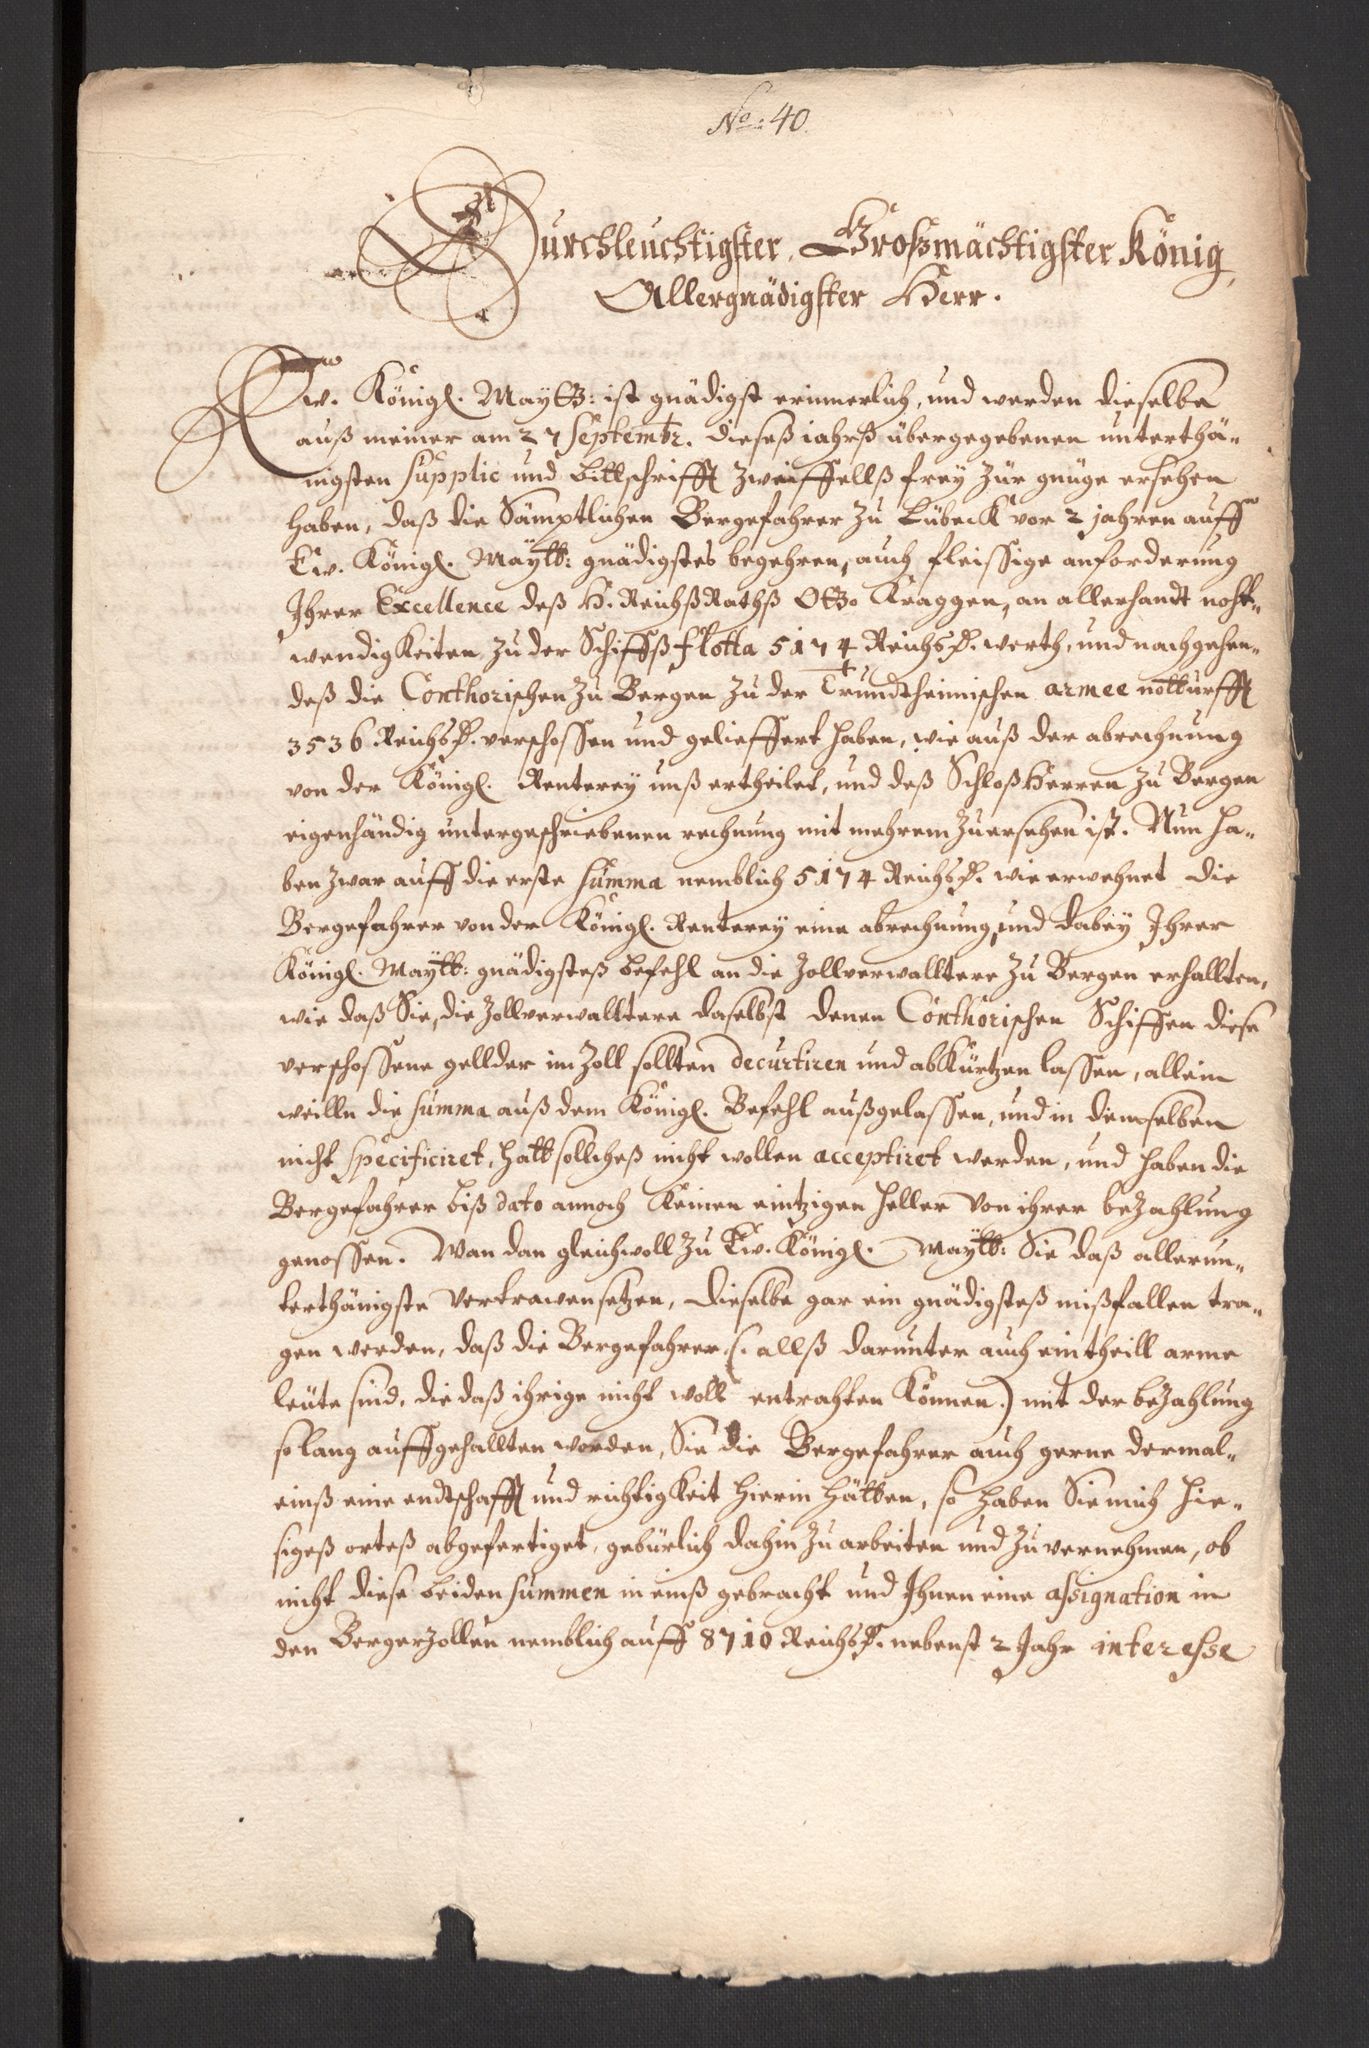 No: 40.
Durchleuchtigster, Großmächtigster König,
Allergnädigster Herr.
Ew. Königl. Maytt: ist gnädigst erinnerlich, und werden dieselbe
auß meiner am 27 Septembr. dieseß iahrß übergegebenen unterthä-
nigsten supplic und Bittschrifft zweiffellß frey zur gnüge ersehen
haben, daß die Sämptlichen Bergefahrer zu Lübeck vor 2 jahren auff
Ew. Königl. Maytt: gnädigstes begehren, auch fleissige anforderung
Ihrer Excellence deß H. ReichßRathß Otto Kraggen, an allerhandt noht-
wendigkeiten zu der Schiffß flotta 5174 Reichsd. werth, und nachgehen-
deß die Conthorischen zu Bergen zu der Trundtheimischen armee notturfft
3536 Reichsd. verschossen und gelieffert haben, wie auß der abrechnung
von der Königl. Renterey unß ertheilet, und deß SchloßHerren zu Bergen
eigenhändig untergeschriebenen rechnung mit mehrem zuersehen ist. Nun ha-
ben zwar auff die erste summa nemblich 5174 Reichsd. wie erwehnet die
Bergefahrer von der Königl. Renterey eine abrechnung, und dabey Ihrer
Königl. Maytt: gnädigsteß befehl an die Zollverwalltere zu Bergen erhallten,
wie daß Sie, die Zollverwalltere daselbst denen Conthorischen Schiffen diese
verschossene gellder im Zoll sollten decurtiren und abkürtzen lassen, allein
weilln die summa auß dem Königl. Befehl außgelassen, und in demselben
nicht specificiret, hatt sollcheß nicht wollen acceptiret werden, und haben die
Bergefahrer biß dato annoch keinen eintzigen heller von ihrer bezahlung
genossen. Wan dan gleichwoll zu Ew. Königl. Maytt: Sie daß allerun-
terthänigste vertrawen setzen, dieselbe gar ein gnädigsteß mißfallen tra-
gen werden, daß die Bergefahrer (: allß darunter auch eintheill arme
leute sind, die daß ihrige nicht woll entrahten können.) mit der bezahlung
so lang auffgehallten worden, Sie die Bergefahrer auch gerne dermal-
einß eine endtschafft und richtigkeit hierin hätten, so haben Sie mich hie-
sigeß orteß abgefertiget, gebürlich dahin zu arbeiten und zu vernehmen, ob
nicht diese beiden summen in einß gebracht und Ihnen eine assignation in
den Bergerzollen nemblich auff 8710 Reichsd. nebenst 2 Jahr interesse